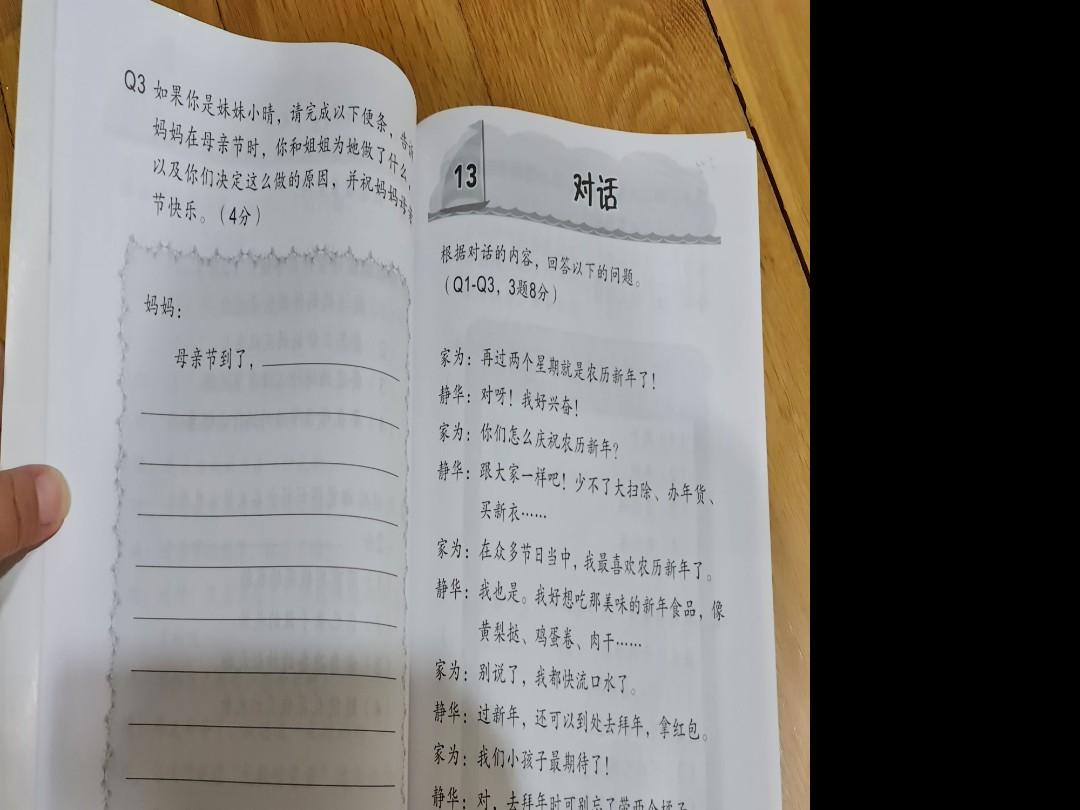 Q3 如果你是妹妹小晴，请完成以下便条，告诉
妈妈在母亲节时，你和姐姐为她做了什么，
以及你们决定这么做的原因，并祝妈妈母亲
节快乐。（4分）
妈妈：
母亲节到了，
13
对话
根据对话的内容，回答以下的问题。
（Q1-Q3，3题8分）
家为：再过两个星期就是农历新年了！
静华：对呀！我好兴奋！
家为：你们怎么庆祝农历新年？
静华：跟大家一样吧！少不了大扫除、办年货、
买新衣……
家为：在众多节日当中，我最喜欢农历新年了。
静华：我也是。我好想吃那美味的新年食品，像
黄梨挞、鸡蛋卷、肉干……
家为：别说了，我都快流口水了。
静华：过新年，还可以到处去拜年，拿红包。
家为：我们小孩子最期待了！
静华：对，去拜年时可别忘了带两个橘子